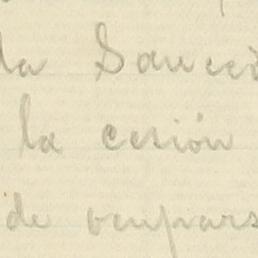 la Sancció
la cesión
de ocupars